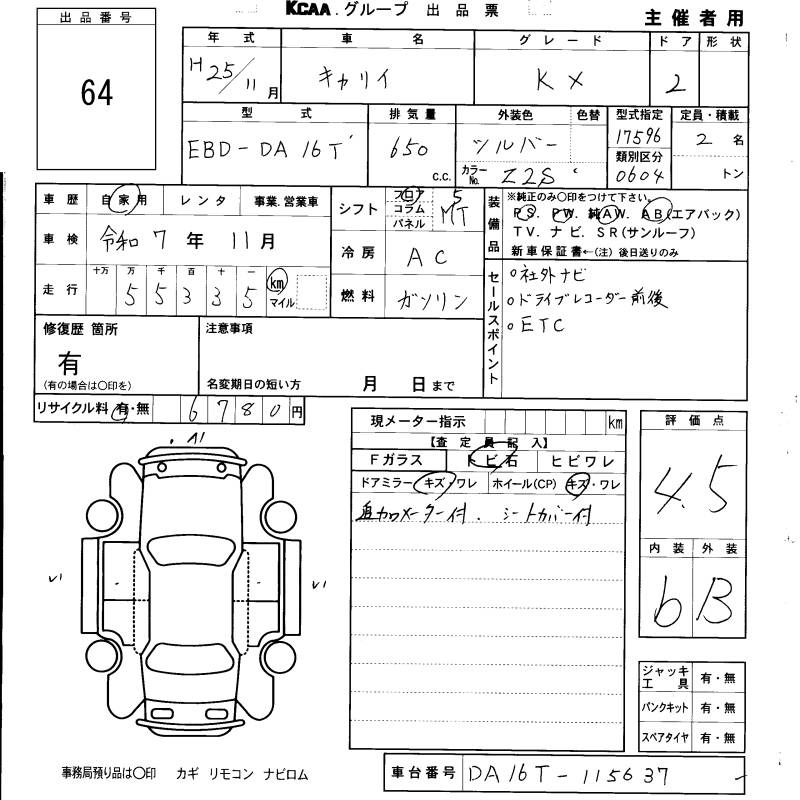 KCAA.グループ 出品票
主催者用
出品番号
64
年式 車名 グレード ドア 形状
H25/11月 キャリイ KX 2
型式 排気量 外装色 色替 型式指定 定員・積載
EBD-DA16T 650 c.c. シルバー 17596 2名
カラーNo. Z2S 類別区分 0604 トン
車歴 自家用 レンタ 事業.営業車
車検 令和7年11月
走行 十万 万 千 百 十 一 km マイル
5 5 3 3 5
シフト フロア コラム パネル 5 MT
冷房 AC
燃料 ガソリン
装備品
※純正のみ〇印をつけて下さい。
PS. PW. 純AW. AB(エアバック)
TV. ナビ. SR(サンルーフ)
新車保証書←(注) 後日送りのみ
セールスポイント
○社外ナビ
○ドライブレコーダー前後
○ETC
修復歴箇所
有
(有の場合は〇印を)
注意事項
名変期日の短い方 月 日まで
リサイクル料 有・無 6780円
現メーター指示 km
【査定員記入】
Fガラス トビ石 ヒビワレ
ドアミラー キズ・ワレ ホイール(CP) キズ・ワレ
追加メーター付. シートカバー付
評価点
4.5
内装 外装
b B
・A1
ジャッキ工具 有・無
パンクキット 有・無
スペアタイヤ 有・無
事務局預り品は〇印 カギ リモコン ナビロム
車台番号 DA16T-115637